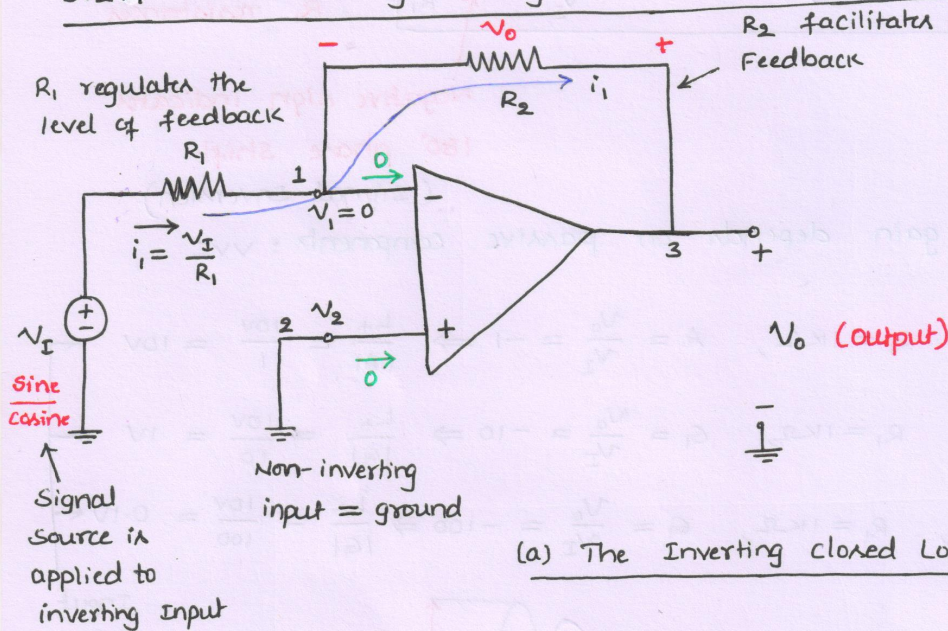 R₂ facilitates
Feedback
R₁ regulates the
level of feedback
- V₀ +
R₂ i₁
R₁
1
0
V₁=0
-
i₁ = V_I / R₁
3
+
V_I
+
-
Sine
Cosine
2
V₂
+
0
V₀ (output)
-
Non-inverting
input = ground
Signal
source is
applied to
inverting Input
(a) The Inverting closed Lo